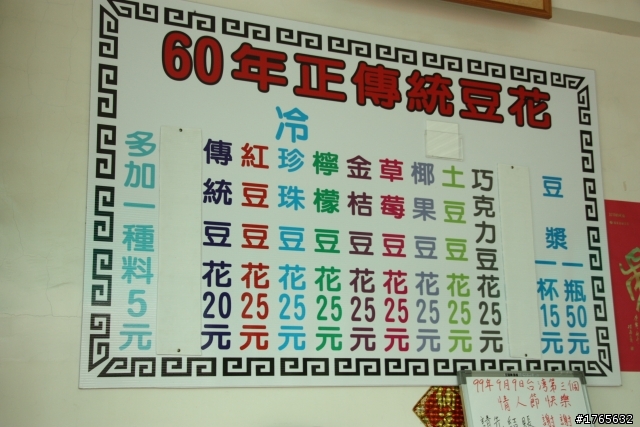 60年正傳統豆花
冷
多加一種料5元
傳統豆花20元
紅豆豆花25元
珍珠豆花25元
檸檬豆花25元
金桔豆花25元
草莓豆花25元
椰果豆花25元
土豆豆花25元
巧克力豆花25元
豆漿
一杯15元
一瓶50元
99年9月9日台灣第三個
情人節快樂
謝謝
#1765632